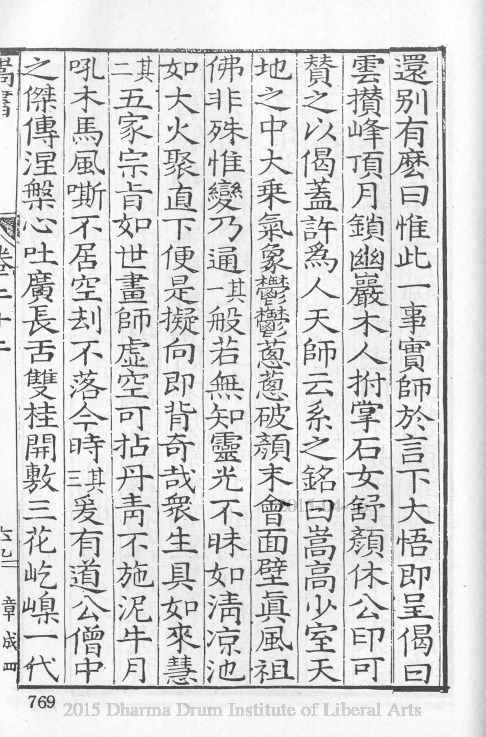 還別有麽曰惟此一事實師於言下大悟即呈偈曰
雲攢峰頂月鎖幽巖木人拊掌石女舒顏休公印可
賛之以偈蓋許爲人天師云系之銘曰嵩高少室天
地之中大乗氣象鬱鬱葱葱破顏末會面壁眞風祖
佛非殊惟變乃通其一般若無知靈光不昧如淸凉池
如大火聚直下便是擬向即背奇哉衆生具如來慧
其二五家宗旨如世畫師虛空可拈丹靑不施泥牛月
吼木馬風嘶不居空刦不落今時其三爰有道公僧中
之傑傳涅槃心吐廣長舌雙桂開敷三花屹嵲一代
嵩書
卷二十二
章成四
769
2015 Dharma Drum Institute of Liberal Arts